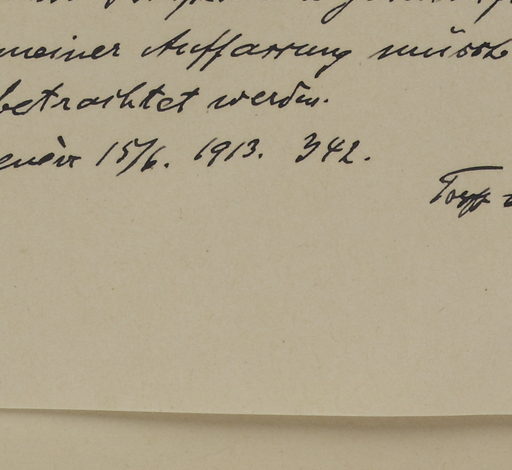 meiner Auffassung müsste
betrachtet werden.
enèv 15/6. 1913. 342.